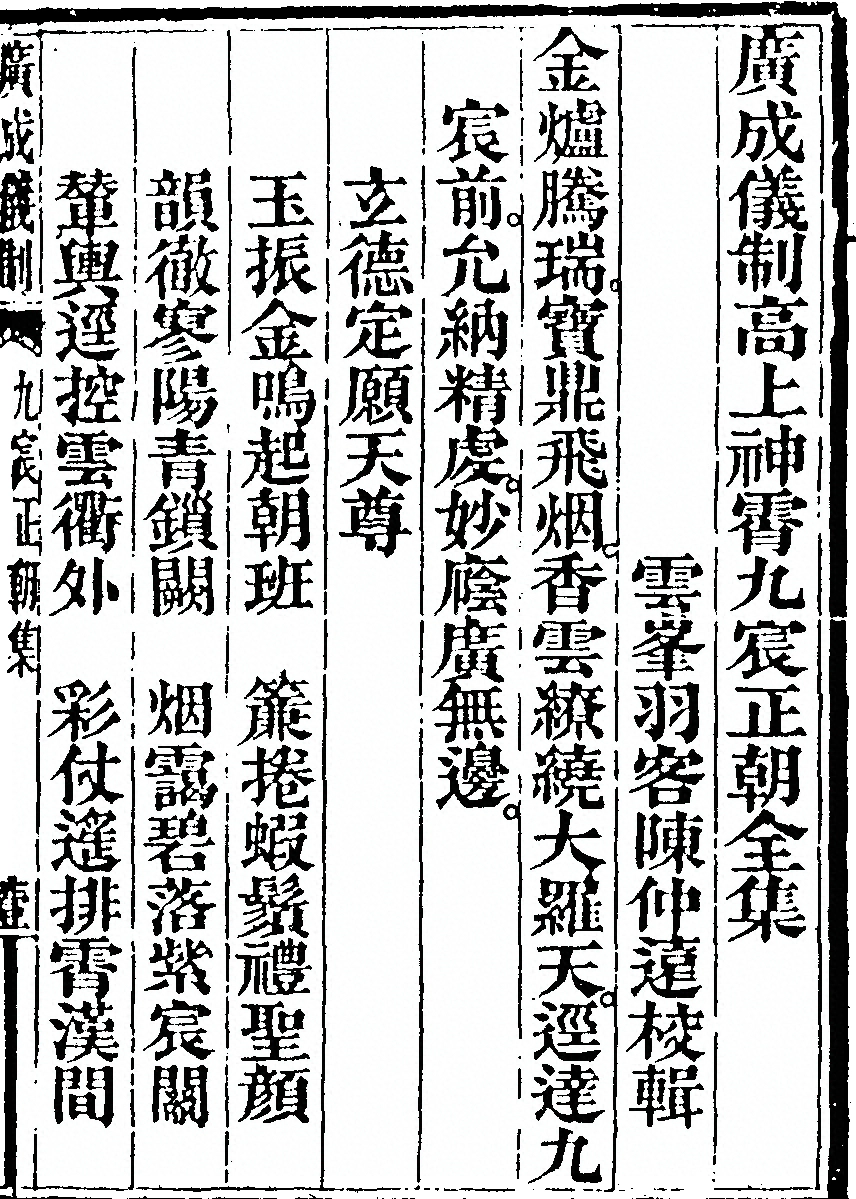 廣成儀制高上神霄九宸正朝全集
雲峯羽客陳仲遠校輯
金爐騰瑞。寶鼎飛烟。香雲繚繞大羅天。逕達九
宸前。允納精虔。妙廕廣無邊。
玄德定願天尊
玉振金鳴起朝班　簾捲蝦鬚禮聖顔
韻徹寥陽青鎖闕　烟靄碧落紫宸關
輦輿逕控雲衢外　彩仗遙排霄漢間
廣成儀制　九宸正朝集　壹